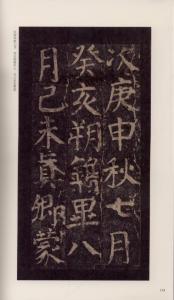 次庚申秋七月
癸亥朔鐫畢八
月己未真卿蒙